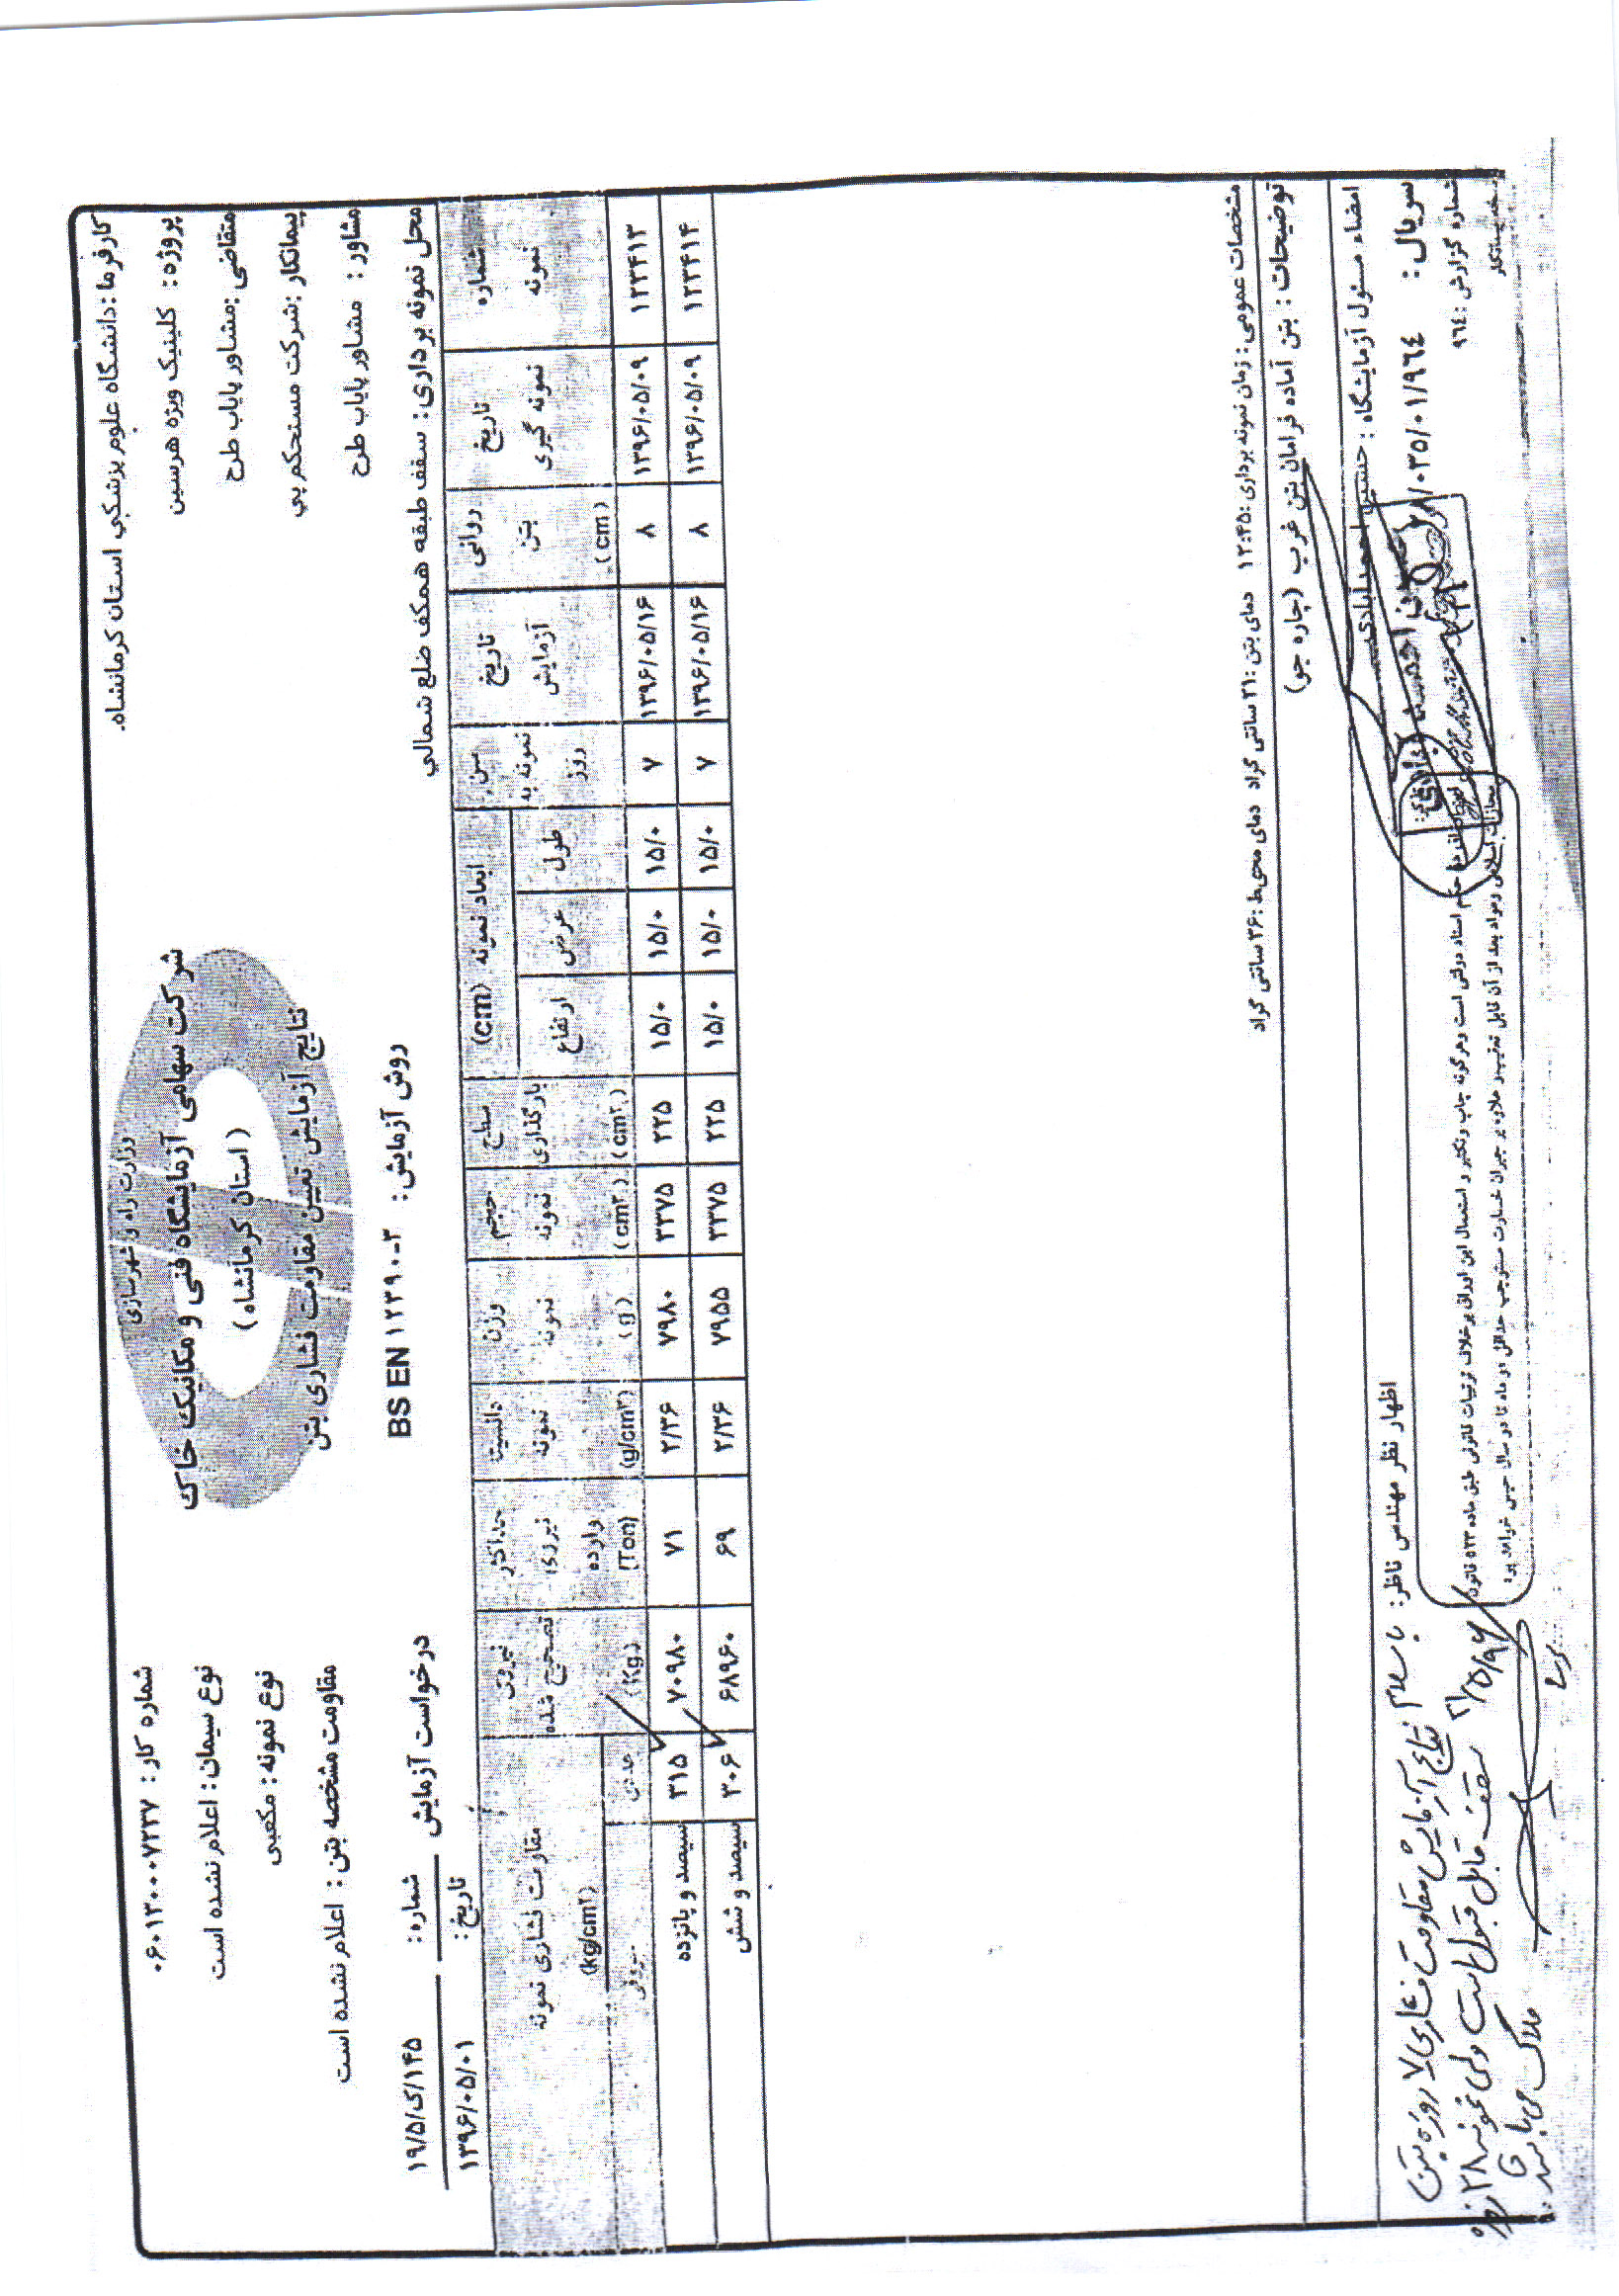 وزارت راه و شهرسازی
شرکت سهامی آزمایشگاه فنی و مکانیک خاک
(استان کرمانشاه)
نتایج آزمایش تعیین مقاومت فشاری بتن
کارفرما : دانشگاه علوم پزشکی استان کرمانشاه.
پروژه : کلینیک ویژه هرسین
متقاضی : مشاور پایاب طرح
پیمانکار : شرکت مستحکم پی
مشاور : مشاور پایاب طرح
محل نمونه برداری : سقف طبقه همکف ضلع شمالی
روش آزمایش : BS EN ۱۲۳۹۰-۳
شماره کار : ۰۶۰۱۳۰۰۰۷۲۳۷
نوع سیمان : اعلام نشده است
نوع نمونه : مکعبی
مقاومت مشخصه بتن : اعلام نشده است
درخواست آزمایش
شماره: ۱۹/۵/ک/۱۴۵
تاریخ: ۱۳۹۶/۰۵/۰۱
شماره نمونه
تاریخ نمونه گیری
روانی بتن (cm)
تاریخ آزمایش
سن نمونه به روز
ابعاد نمونه (cm)
طول عرض ارتفاع
سطح بارگذاری (cm۲)
حجم نمونه (cm۳)
وزن نمونه (g)
دانسیته نمونه (g/cm۳)
حداکثر نیروی وارده (Ton)
نیروی تصحیح شده (Kg)
مقاومت فشاری نمونه (kg/cm۲)
عددی حروفی
۱۲۳۴۱۳ ۱۳۹۶/۰۵/۰۹ ۸ ۱۳۹۶/۰۵/۱۶ ۷ ۱۵/۰ ۱۵/۰ ۱۵/۰ ۲۲۵ ۳۳۷۵ ۷۹۸۰ ۲/۳۶ ۷۱ ۷۰۹۸۰ ۳۱۵ سیصد و پانزده
۱۲۳۴۱۴ ۱۳۹۶/۰۵/۰۹ ۸ ۱۳۹۶/۰۵/۱۶ ۷ ۱۵/۰ ۱۵/۰ ۱۵/۰ ۲۲۵ ۳۳۷۵ ۷۹۵۵ ۲/۳۶ ۶۹ ۶۸۹۶۰ ۳۰۶ سیصد و شش
مشخصات عمومی : زمان نمونه برداری : ۱۲:۴۵ دمای بتن : ۳۱ سانتی گراد دمای محیط : ۳۶ سانتی گراد
توضیحات : بتن آماده فرامان بتن غرب (چاره جو)
امضاء مسئول آزمایشگاه :
اظهار نظر مهندس ناظر:
با سلام
نتایج آزمایش مقاومت فشاری ۷ روزه بتن
سقف قابل قبول است ولی نمونه ۲۸ روزه
ملاک می باشد
سریال : ۰۳۵/۰۱/۹۶۴
شماره گزارش : ۹۶۴